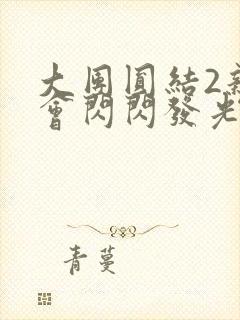 大團圓結2新
會閃閃發光
青蔓